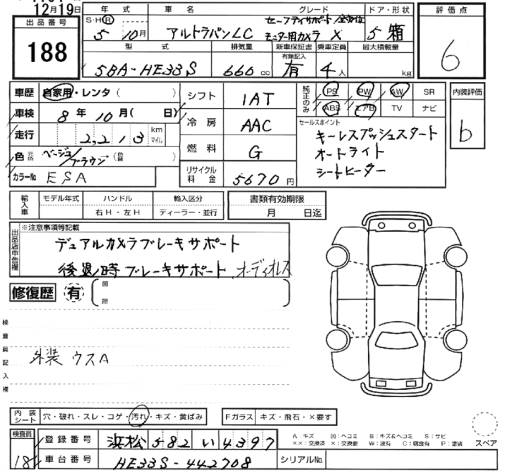 12月19日
出品番号 188
年式 S・H・R 5 10月
車名 アルトラパンLC
グレード セーフティサポート/全方位モニター用カメラ X
ドア・形状 5 箱
評価点 6
型式 5BA-HE33S
排気量 660 cc
新車保証書 有無記入 有
乗車定員 4人
最大積載量 kg
車歴 自家用・レンタ ( )
車検 8年10月( 日)
走行 2,213 km マイル
色 ベージュ/ブラウン
カラーNo ESA
シフト 1AT
冷房 AAC
燃料 G
リサイクル料金 5670円
純正のみ PS PW AW SR
ABS エアB TV ナビ
内装評価 b
セールスポイント
キーレスプッシュスタート
オートライト
シートヒーター
輸入車 モデル年式 ハンドル 輸入区分
右H・左H ディーラー・並行
書類有効期限
月 日迄
※注意事項等記載
デュアルカメラブレーキサポート
後退時ブレーキサポート オーディオレス
修復歴 有
検査員記入欄
外装 ウスA
内装シート 穴・破れ・スレ・コゲ・汚れ・キズ・黄ばみ
Fガラス キズ・飛石・×要す
検査員 18
登録番号 浜松 582 い 4397
車台番号 HE33S-442708
シリアルNo.
A キズ B キズ&ヘコミ S サビ
スペア